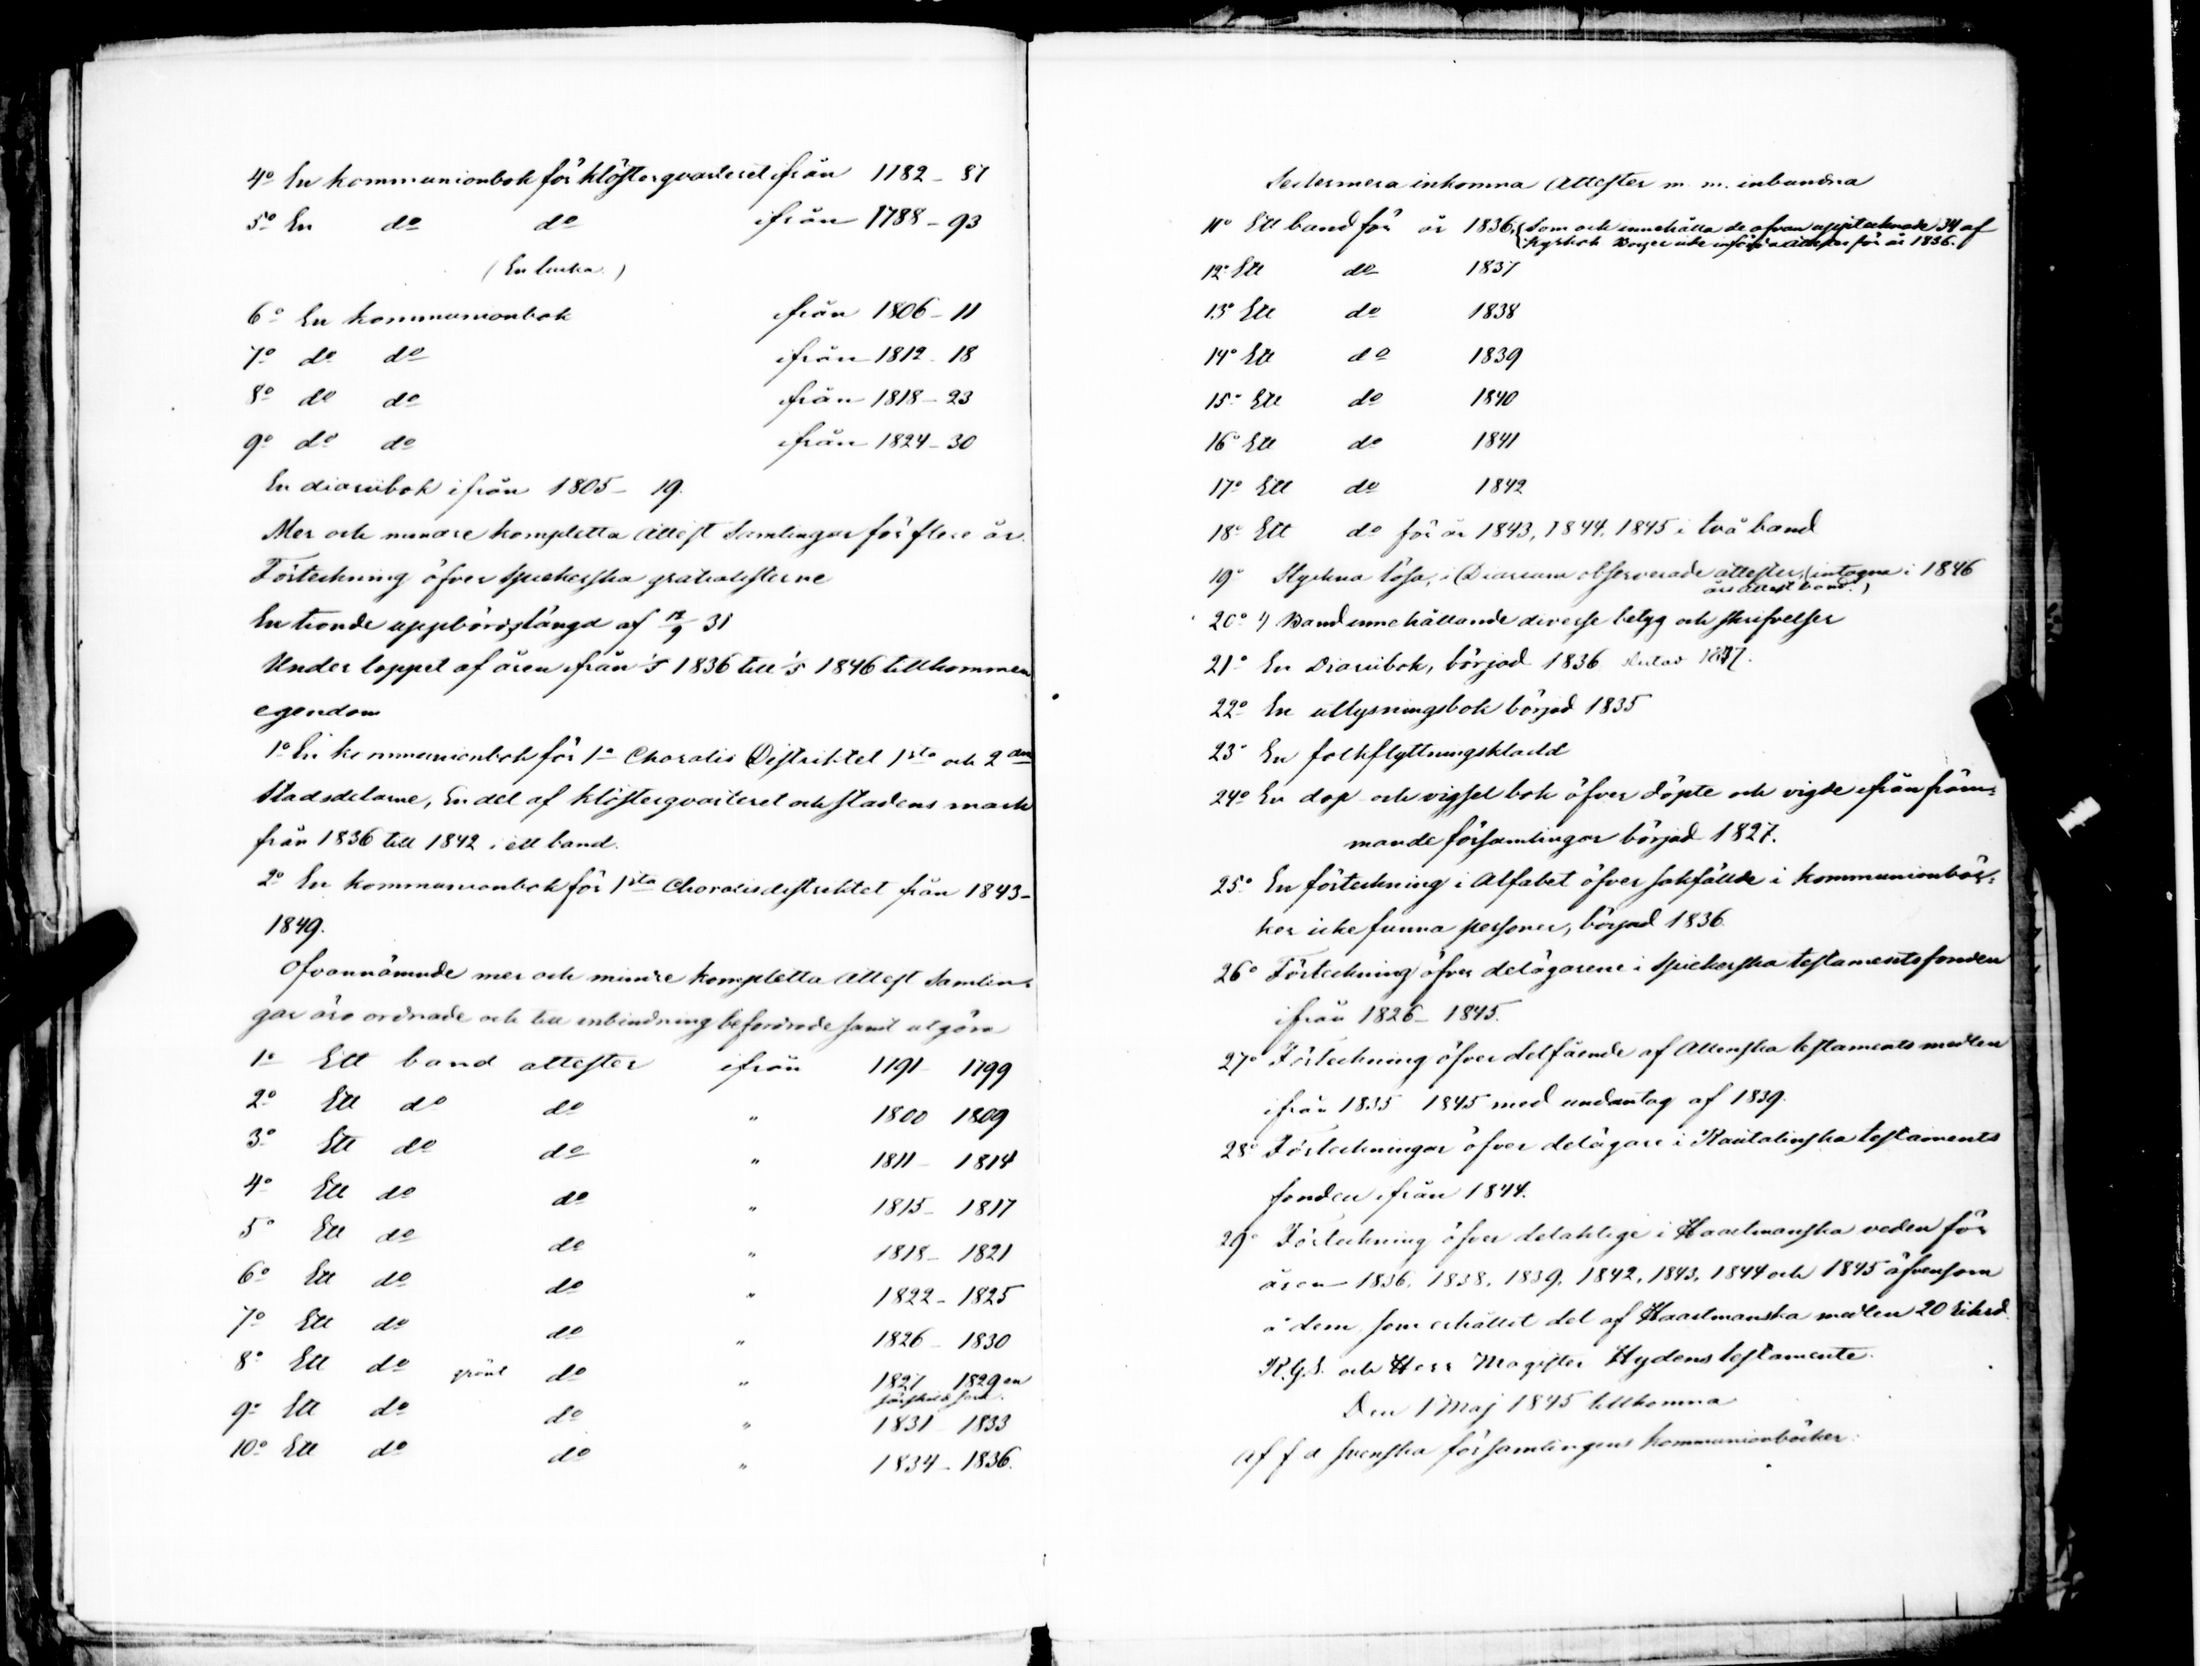 4º En kommunionbok för Klöstergvarteret ifrån 1782 - 87
5º En dº dº ifrån 1788 - 93
(En lucka.)
6º En kommunionbok ifrån 1806 - 11
7º dº dº ifrån 1812 - 18
8º dº dº ifrån 1818 - 23
9º dº dº ifrån 1824 - 30
En diariibok ifrån 1805 - 19.
Mer och mindre kompletta Attest Samlingar för flere år.
Förteckning öfver Spiekerska gratialisterne
En tionde uppbördslängd af 12/9 31
Under loppet af åren ifrån 1836 till 1846 tillkommen
egendom
1º En kommunionbok för 1ª Choralis Distriktet 1sta och 2dra
Stadsdelarne, En del af Klöstergvarteret och stadens mark
från 1836 till 1842 i ett band.
2º En kommunionbok för 1sta Choralisdistriktet från 1843 -
1849.
Ofvannämnde mer och mindre kompletta Attest Samlin-
gar äro ordnade och till inbindning befordrade samt utgöra
1º Ett band attester ifrån 1791 - 1799
2º Ett dº dº " 1800 1809
3º Ett dº dº " 1811 - 1814
4º Ett dº dº " 1815 - 1817
5º Ett dº dº " 1818 - 1821
6º Ett dº dº " 1822 - 1825
7º Ett dº dº " 1826 - 1830
8º Ett dº grönt dº " 1827 1829 en
särskild
9º Ett dº dº " 1831 1833
10º Ett dº dº " 1834 - 1836.
Sedermera inkomna Attester m. m. inbundna
11º Ett band för år 1836, (Som och innehålla de ofvan upptecknade 34 af
icke införda attester för år 1836.
12º Ett dº 1837
13º Ett dº 1838
14º Ett dº 1839
15º Ett dº 1840
16º Ett dº 1841
17º Ett dº 1842
18º Ett dº för år 1843, 1844, 1845 i två band
19º Stycken lösa, i Diarium observerade attester, (intagna i 1846
års attest band.)
20º 4 Band innehållande diverse betyg och skrifvelser
21º En Diariibok, börjad 1836 slutad 1847.
22º En utlysningsbok börjad 1835
23º En folkflyttningskladd
24º En dop och vigsel bok öfver döpte och vigde ifrån främ-
mande församlingar börjad 1827.
25º En förteckning i Alfabet öfver sakfällde i kommunionböc-
ker icke funna personer, börjad 1836.
26º Förteckning öfver delägarene i Spiekerska testamentsfonden
ifrån 1826 - 1845.
27º Förteckning öfver delfående af Allenska testaments medlen
ifrån 1835 1845 med undantag af 1839.
28º Förteckningar öfver delägare i Rautalinska testaments
fonden ifrån 1844.
29º Förteckning öfver delaktige i Haartmanska veden för
åren 1836, 1838, 1839, 1842, 1843, 1844 och 1845 äfvensom
å dem som erhållit del af Haartmanska medlen 20 Riksd.
R.G.S. och Herr Magister Hydens testamente.
Den 1 Maj 1845 tillkomna
Af f d svenska församlingens kommunionböcker: